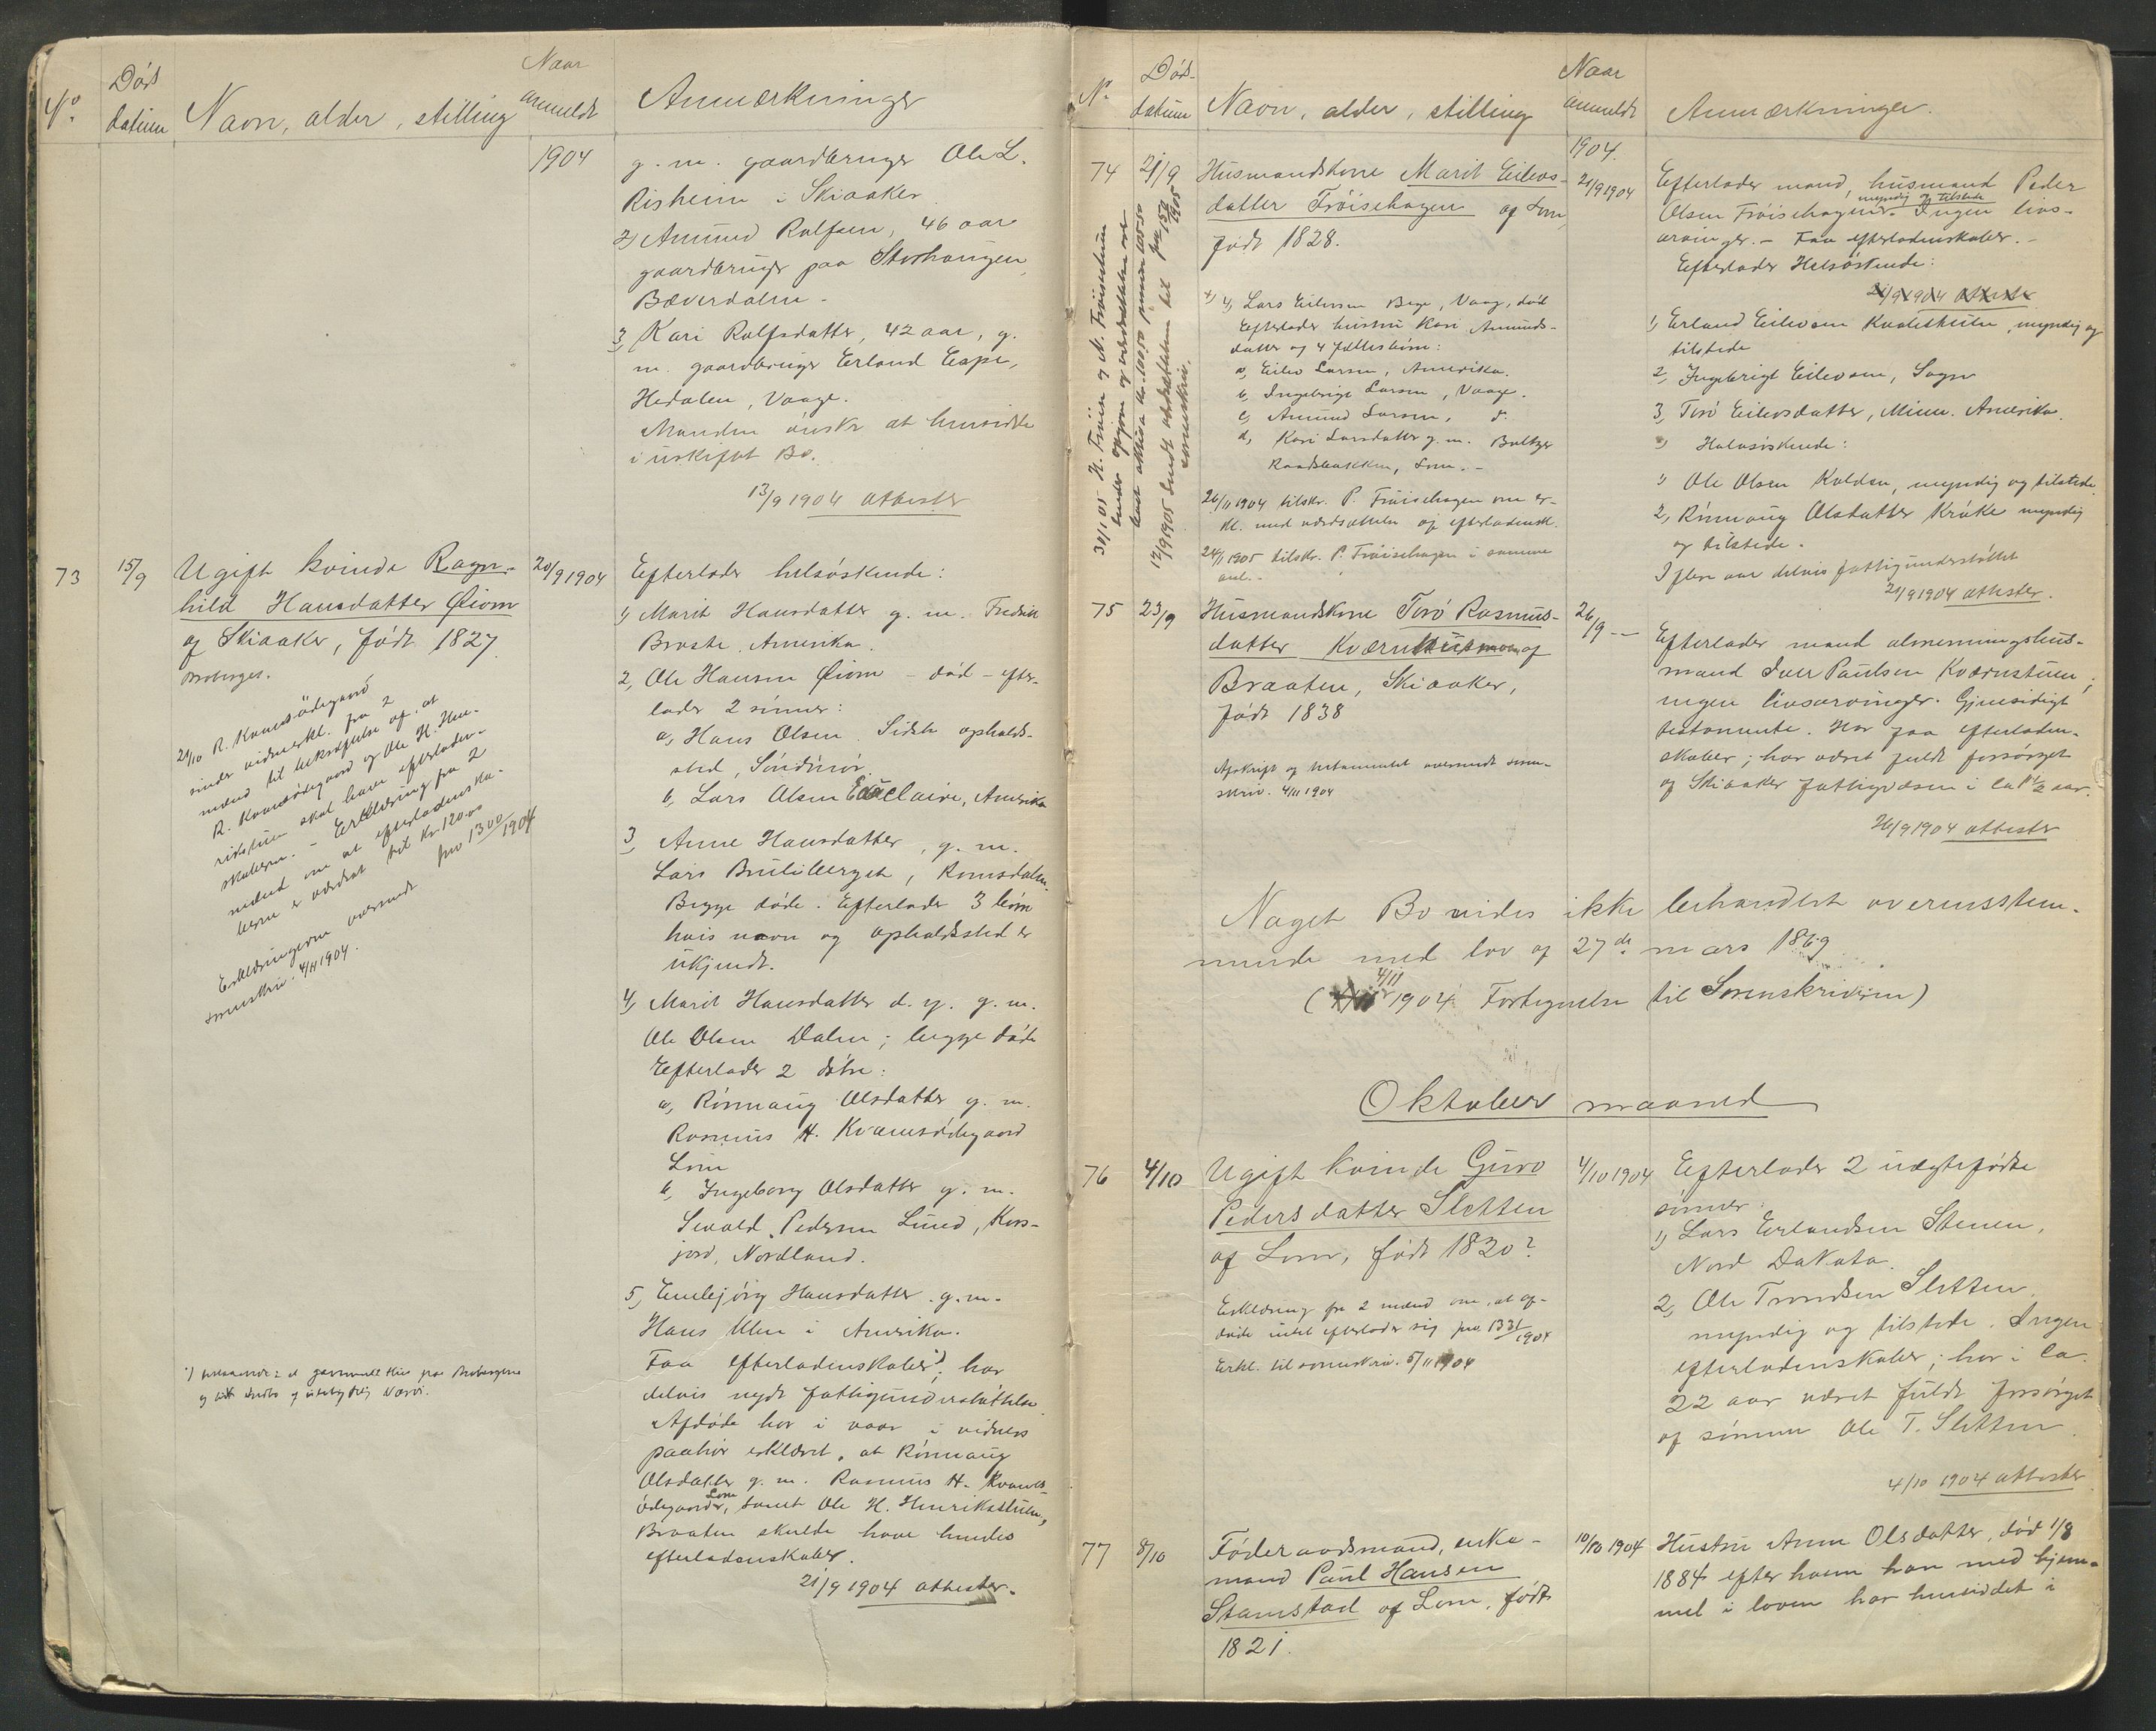 No.
Døds
datum
Navn, alder, stilling
Naar
anmeldt
Anmærkninger
1904
g. m. gaardbruger Ole L.
Risheim i Skiaaker
2, Amund Rolfsen, 46 aar
gaardbruger paa Storhaugen,
Bæverdalen -
3, Kari Rolfsdatter, 42 aar, g.
m. gaardbruger Erland Espe,
Hedalen, Vaage.
Manden ønsker at hensidde
i uskiftet Bo.
13/9 1904 attester
73
15/9
Ugift kvinde Ragn-
hild Hansdatter Øiom
af Skiaaker, født 1827
Broberget.
29/10 R. Kvamsødegaard
sender vidneerkl. fra 2
mænd til bekræftelse af, at
R. Kvamsødegaard og Ole H. Hen-
rikstuen skal have efterladen-
skaberne. - Erklæring fra 2
mænd om at efterladenska-
berne er værdsat til Kr. 120.00
Erklæringerne oversendt pro 1300/1904
sorenskriv. 4/11 1904.
20/9 1904
Efterlader helsøskende:
1, Marit Hansdatter g. m. Fredrik
Broste, Amerika.
2, Ole Hansen Øiom - død - efter-
lader 2 sønner:
a, Hans Olsen. Sidste opholds-
sted, Søndmør.
b, Lars Olsen Eau Claire, Amerika
3, Anne Hansdatter, g. m.
Lars Romsdalen.
Begge døde. Efterlader 3 børn
hvis navn og opholdssted er
ukjendt.
4, Marit Hansdatter d. y. g. m.
Ole Olsen Dalen; begge døde
Efterlader 2 døtre:
a, Rønnaug Olsdatter g. m.
Rasmus H. Kvamsødegaard
Lom
b, Ingeborg Olsdatter g. m.
Sivald Pedersen Lund, Kors-
fjord, Nordland.
5, Embjørg Hansdatter g. m.
Hans Ulen i Amerika.
Faa efterladenskaber*); har
delvis nydt fattigunderstøttelse
Afdøde har i vaar i vidners
paahør erklæret, at Rønnaug
Olsdatter g. m. Rasmus H. Kvams-
ødegaard, Lom, samt Ole H. Henrikstuen,
Braaten skulde have hendes
efterladenskaber.
21/9 1904 attester.
*) bestaaende i et gammelt hus paa Broberget
og lidt indbo af ubetydelig Værdi.
No.
Døds-
datum
Navn, alder, stilling
Naar
anmeldt
Anmærkninger.
1904.
74
21/9
Husmandskone Marit Eilevs-
datter Frøisehagen af Lom,
født 1828.
*) 4, Lars Eilevsen Vaage, død
Efterlader hustru Kari Amunds-
datter og 4 fællesbørn:
a, Eilev Larsen, Amerika.
b, Ingebrigt Larsen, Vaage.
c, Amund Larsen, do.
d, Kari Larsdatter g. m. Baltzer
Raadsbakken, Lom. -
26/11 1904 tilskr. P. Frøisehagen om er-
kl. med værdsættelse af efterladensk.
24/1 1905 tilskr. P. Frøisehagen i samme
anl. -
17/9 1905 sendt værdsættelsen til sorenskriv.
21/9 1904
Efterlader mand, husmand Peder
Olsen Frøisehagen, myndig og tilstede. Ingen livs-
arvinger. - Faa efterladenskaber. -
Efterlader Helsøskende:
21/9 1904 attester
1, Erland Eilevsen Kvalestuen, myndig og
tilstede
2, Ingebrigt Eilevsen, Sogn
3, Torø Eilevsdatter, Minn. Amerika
*) Halvsøskende:
1, Ole Olsen Kolden, myndig og tilstede.
2, Rønnaug Olsdatter Kråke myndig
og tilstede.
I flere aar delvis fattigunderstøttet
21/9 1904 attester.
75
23/9
Husmandskone Torø Rasmus-
datter af
Braaten, Skiaaker,
født 1838
Afskrift af testamentet oversendt soren-
skriv. 4/11 1904
26/9 -
Efterlader mand almenningshus-
mand Iver Paulsen Kværnstuen,
ingen livsarvinger. Gjensidigt
testamente. Har faa efterladen-
skaber; har været fuldt forsørget
af Skiaaker fattigvæsen i ca 1 1/2 aar.
26/9 1904 attester
Noget Bo vides ikke behandlet overensstem-
mende med lov af 27de mars 1869
(4/11 1904 Fortegnelse til Sorenskriveren)
Oktober maaned
76
4/10
Ugift kvinde Guro
Pedersdatter Sletten
af Lom, født 1830?
Erklæring fra 2 mænd om, at af-
døde intet efterlader sig pro 1331/1904
Erkl. til sorenskriv. 5/11 1904
4/10 1904
Efterlader 2 uægtefødte
sønner:
1, Lars Erlandsen Stenen,
Nord Dakota.
2, Ole Trondsen Sletten,
myndig og tilstede. Ingen
efterladenskaber; har i ca.
22 aar været fuldt forsørget
af sønnen Ole T. Sletten.
4/10 1904 attester
77
8/10
Føderaadsmand, enke-
mand Paul Hansen
Stamstad af Lom, født
1821.
10/10 1904
Hustru Anne Olsdatter, død 1/8
1884 efter hvem han med hjem-
mel i loven har hensiddet i